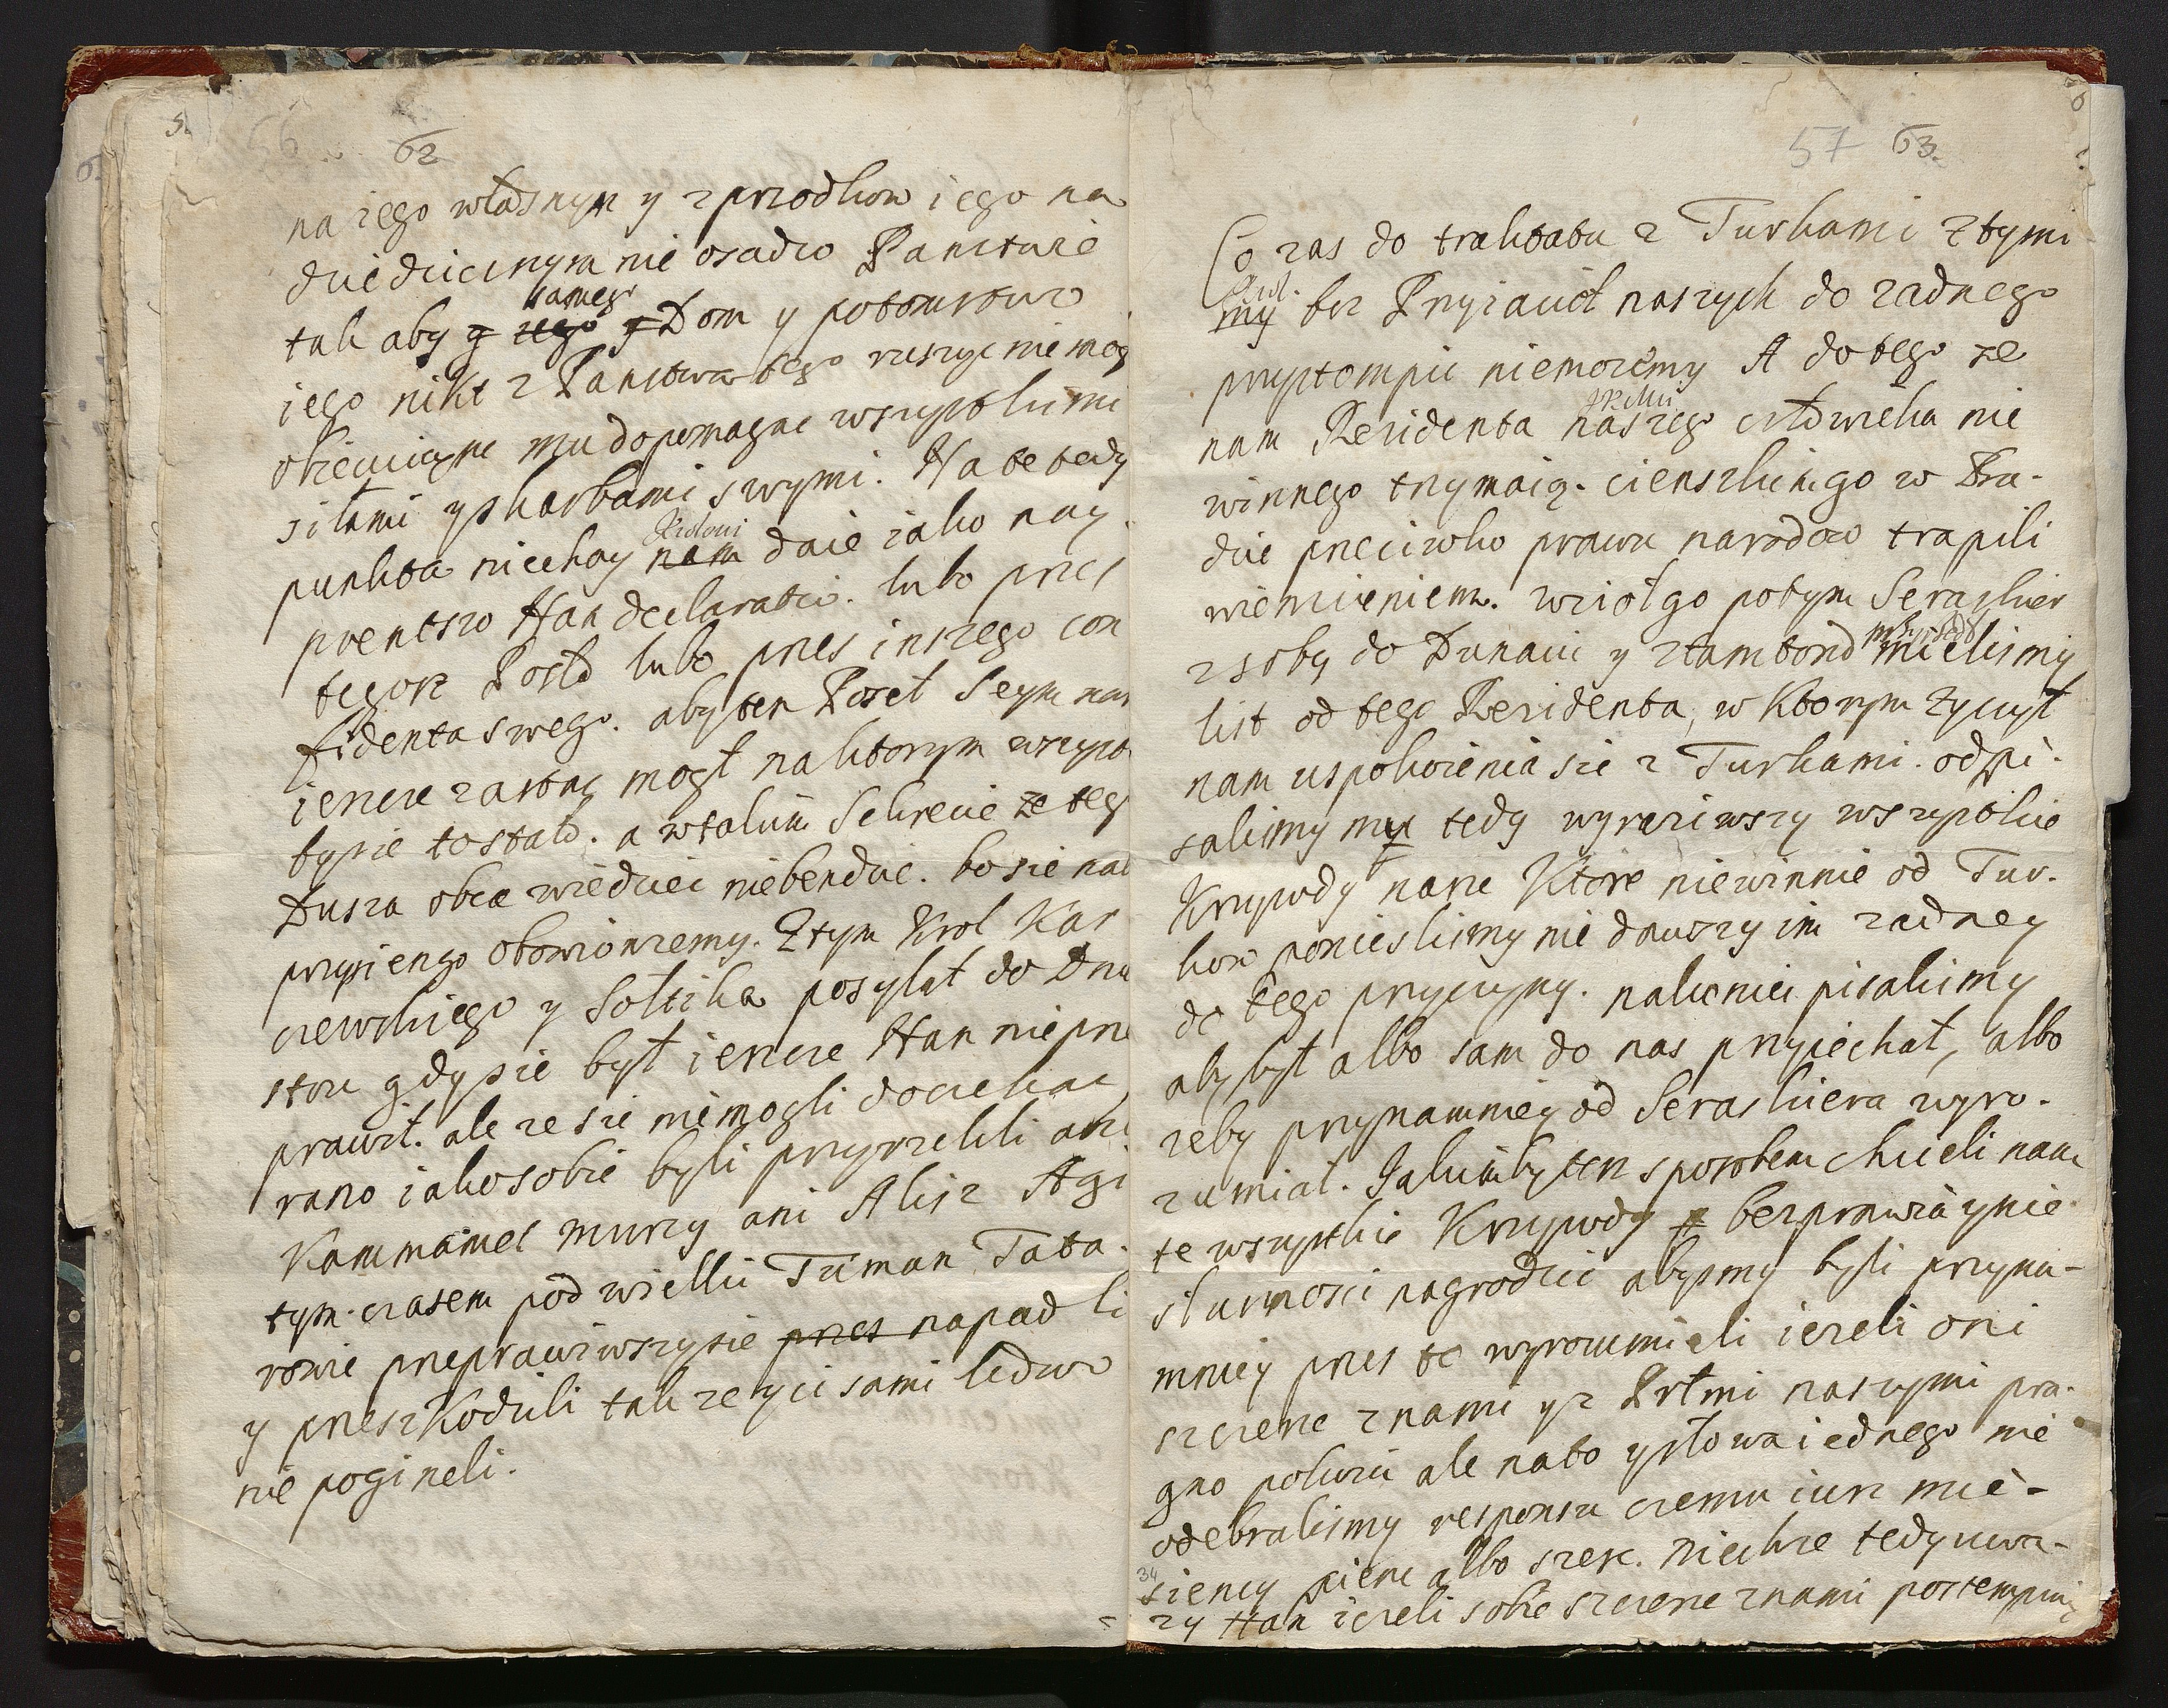 62
na iego własnym y z przodkow iego na
dziedzicznym nie osadzo Panstwie
samego
tak aby z tego y Dom y potomstwo
iego nikt z Panstwa tego ruszyc nie mog
obiecuiąne mu dopomagac wszystkimi
siłami y skarbami swymi. Na te tedy
Krolowi
punkta niechay nam daie iako nay
prentszo Han declaratio. lubo przes
tegosz Posła lubo przes inszego con
fidenta swego. aby ten Poseł Seym nas
iescze zastac mogł na ktorym wszyst
by sie to stało. a w takim Sekrecie ze teg
Dusza obca wiedziec niebendzie. bo sie na
przysiengo obowionzemy. Z tym Krol Kar
czewskiego y Soltika posyłał do Dnie
stru gdy sie był iescze Han nie prze
prawił. ale ze sie nie mogli doczekac
rano iako sobie byli przyrzekli ani
Kammamet murzy ani Alisz Agi
tym czasem pod wielki Tuman Tata-
rowie przeprawiwszy sie przes napadli
y przeszkodzili tak ze y ci sami ledwo
nie pogineli.
57 63.
Co zas do traktatu z Turkami Z tymi
Krol.
my bez Przyiacioł naszych do zadnego
przystompic niemozemy A do tego ze
nam Residenta naszego człowieka nie
winnego trzymaią. cienszkiengo w Bra-
dzie przeciwko prawu narodow trapili
wienzieniem. wzioł go potym Seraskier
z soby do Dunaiu y ztamtond mielismy
list od tego Residenta, w ktorym zyczył
nam uspokoienia sie z Turkami. odpi-
salismy my tedy wyraziwszy wszystkie
Krzywdy nasze Ktore niewinnie od Tur-
kow ponieslismy nie dawszy im zadney
do tego przyczyny. nakoniec pisalismy
aby był albo sam do nas przyiechał, albo
zeby przynamniey od Seraskiera wyro-
zumiał. Jakimby ten sposobem chcieli nam
te wszystkie Krzywdy y bezprawia y nie
slusznosci nagrodzic abysmy byli przyna-
mniey przes to wyrozumieli iezeli oni
szczerze z nami y z Prtmi naszymi pra-
gno pokoiu ale na to y słowa iednego nie
odebralismy responsu czemu iusz mie-
34
siency pienc albo szesc. niechze tedy uwa-
zy Han iezeli sobie szczerze z nami postempuią